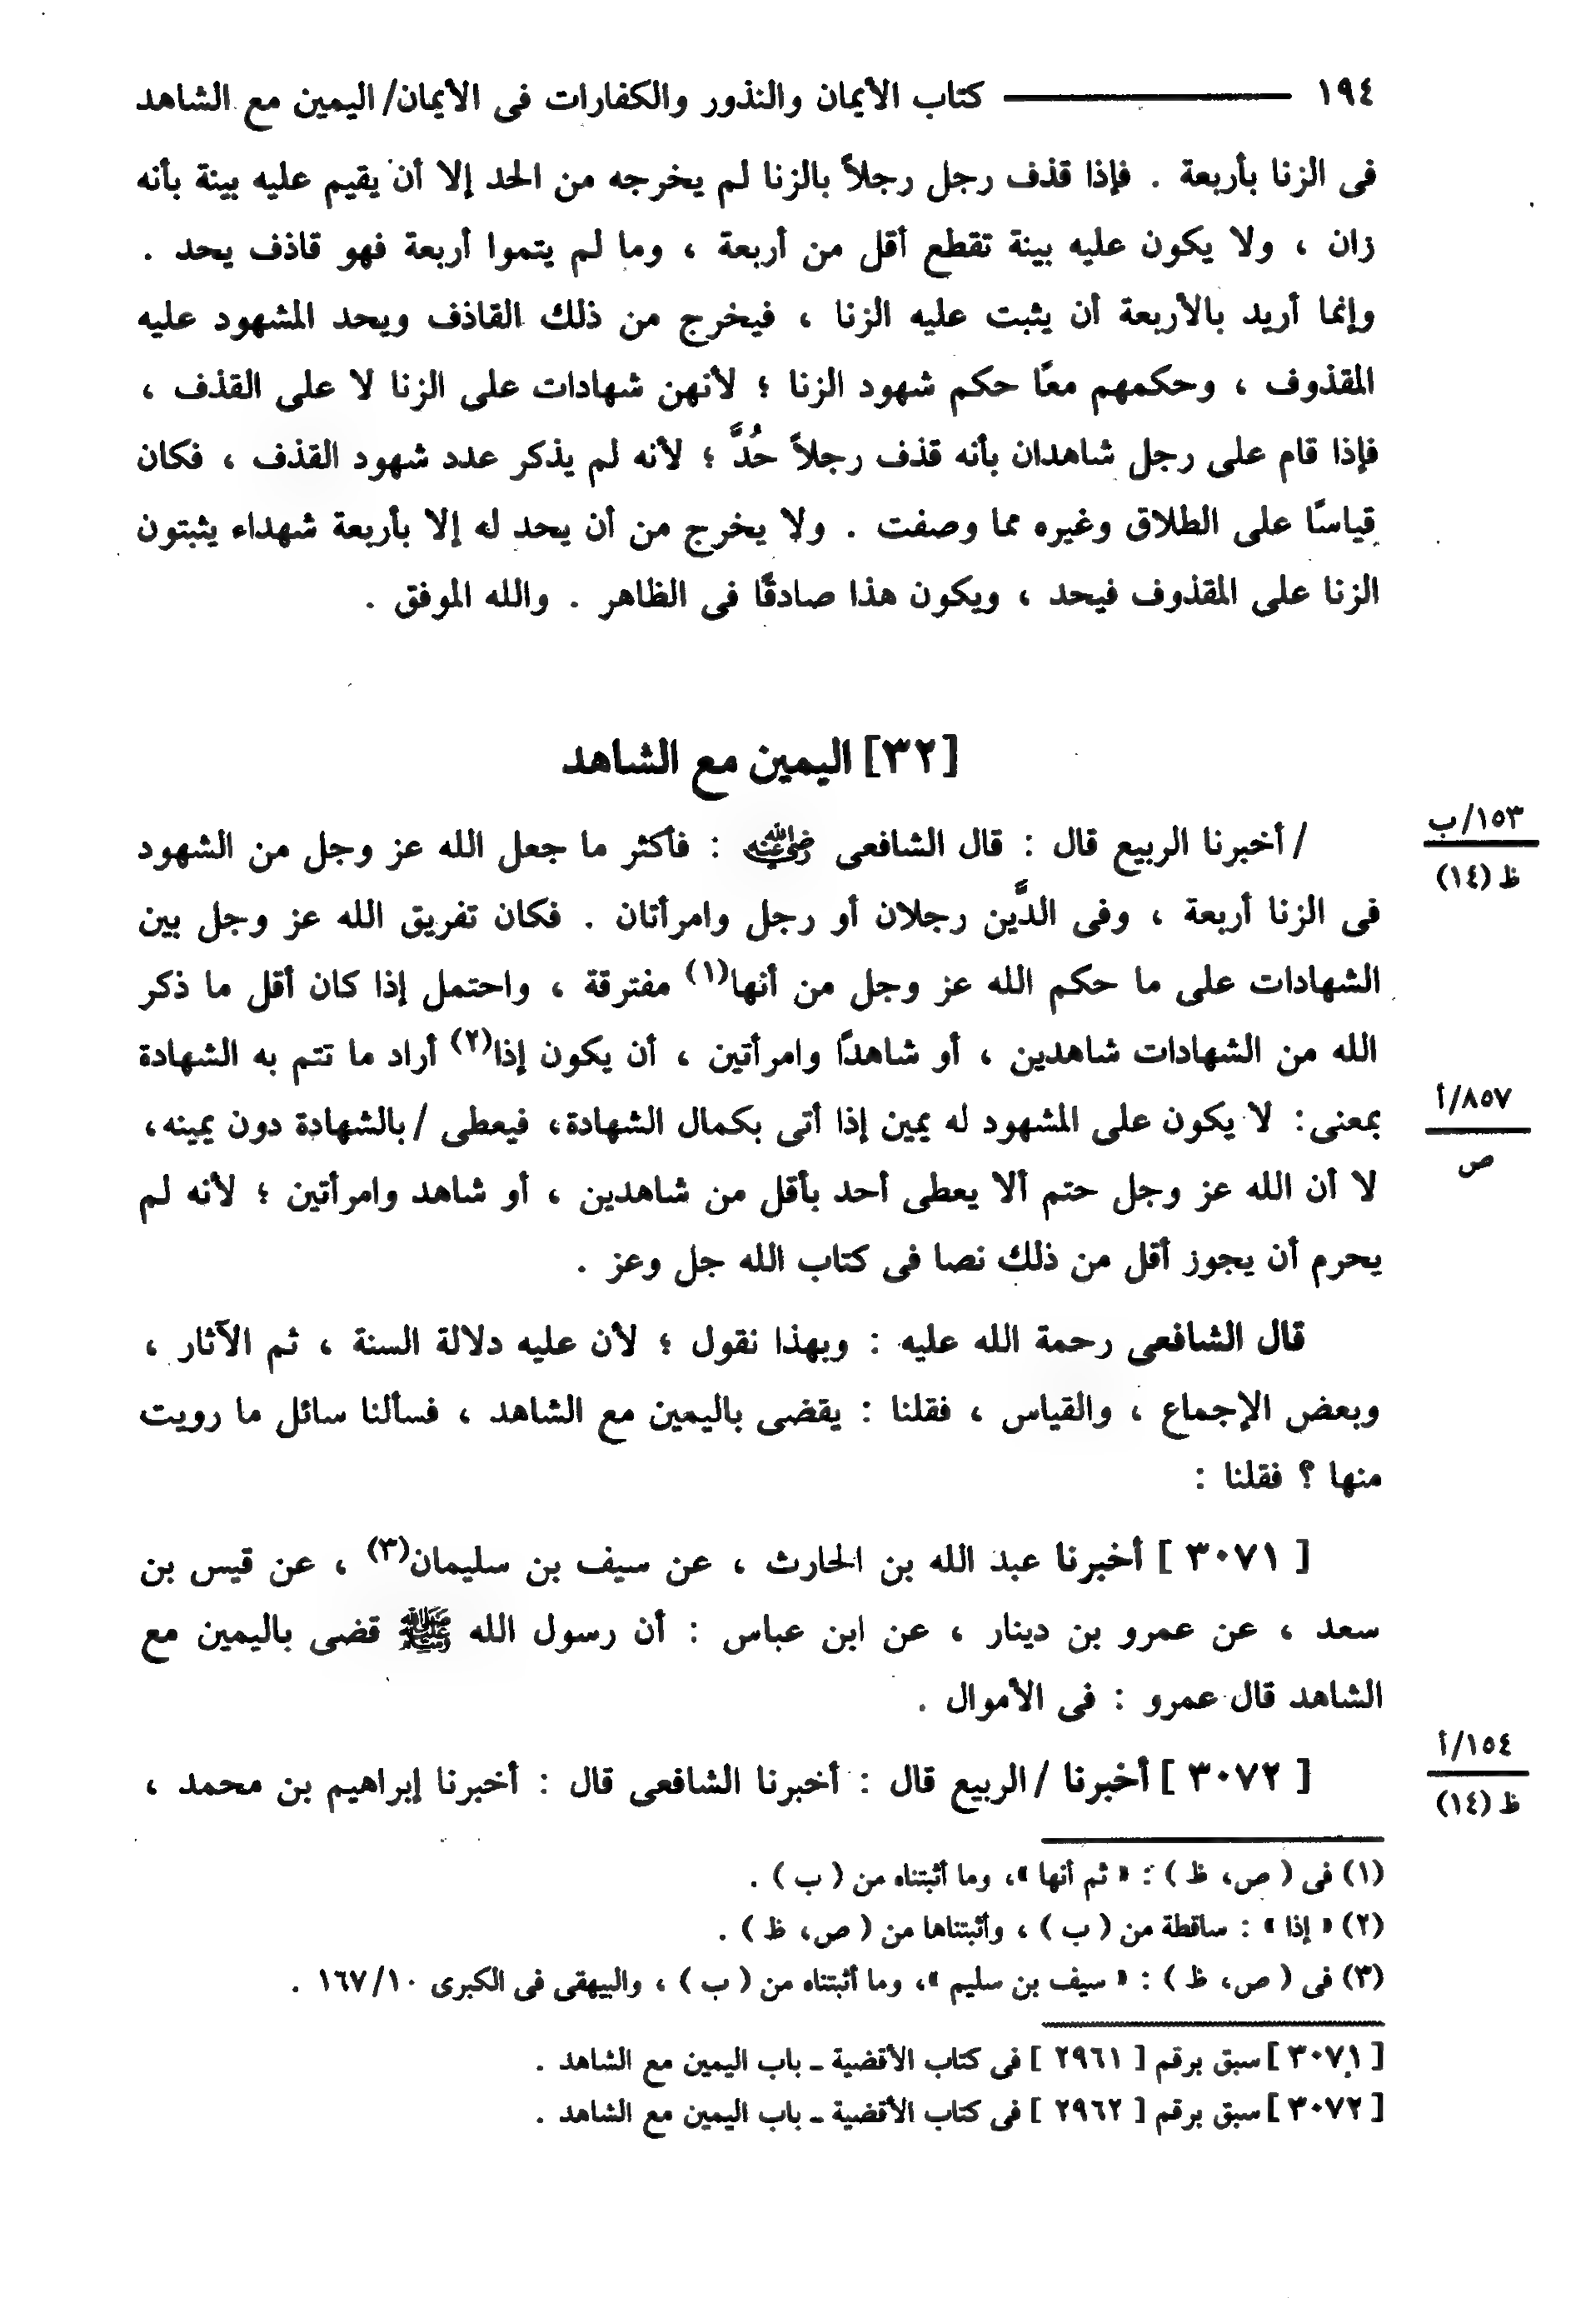 ١٩٤ ــــــــــ كتاب الأيمان والنذور والكفارات فى الأيمان/ اليمين مع الشاهد
فى الزنا بأربعة . فإذا قذف رجل رجلاً بالزنا لم يخرجه من الحد إلا أن يقيم عليه بينة بأنه
زان ، ولا يكون عليه بينة تقطع أقل من أربعة ، وما لم يتموا أربعة فهو قاذف يحد .
وإنما أريد بالأربعة أن يثبت عليه الزنا ، فيخرج من ذلك القاذف ويحد المشهود عليه
المقذوف ، وحكمهم معًا حكم شهود الزنا ؛ لأنهن شهادات على الزنا لا على القذف ،
فإذا قام على رجل شاهدان بأنه قذف رجلاً حُدَّ ؛ لأنه لم يذكر عدد شهود القذف ، فكان
قياسًا على الطلاق وغيره مما وصفت . ولا يخرج من أن يحد له إلا بأربعة شهداء يثبتون
الزنا على المقذوف فيحد ، ويكون هذا صادقًا فى الظاهر . والله الموفق .
[٣٢] اليمين مع الشاهد
/ أخبرنا الربيع قال : قال الشافعى رضي الله عنه : فأكثر ما جعل الله عز وجل من الشهود
١٥٣/ب
ظ (١٤)
فى الزنا أربعة ، وفى الدَّين رجلان أو رجل وامرأتان . فكان تفريق الله عز وجل بين
الشهادات على ما حكم الله عز وجل من أنها(١) مفترقة ، واحتمل إذا كان أقل ما ذكر
الله من الشهادات شاهدين ، أو شاهدًا وامرأتين ، أن يكون إذا(٢) أراد ما تتم به الشهادة
بمعنى: لا يكون على المشهود له يمين إذا أتى بكمال الشهادة، فيعطى / بالشهادة دون يمينه،
٨٥٧/أ
ص
لا أن الله عز وجل حتم ألا يعطى أحد بأقل من شاهدين ، أو شاهد وامرأتين ؛ لأنه لم
يحرم أن يجوز أقل من ذلك نصا فى كتاب الله جل وعز .
قال الشافعى رحمة الله عليه : وبهذا نقول ؛ لأن عليه دلالة السنة ، ثم الآثار ،
وبعض الإجماع ، والقياس ، فقلنا : يقضى باليمين مع الشاهد ، فسألنا سائل ما رويت
منها ؟ فقلنا :
[ ٣٠٧١ ] أخبرنا عبد الله بن الحارث ، عن سيف بن سليمان(٣) ، عن قيس بن
سعد ، عن عمرو بن دينار ، عن ابن عباس : أن رسول الله ﷺ قضى باليمين مع
الشاهد قال عمرو : فى الأموال .
[ ٣٠٧٢ ] أخبرنا / الربيع قال : أخبرنا الشافعى قال : أخبرنا إبراهيم بن محمد ،
١٥٤/أ
ظ (١٤)
(١) فى ( ص، ظ ) : « ثم أنها »، وما أثبتناه من ( ب ) .
(٢) « إذا » : ساقطة من ( ب ) ، وأثبتناها من ( ص، ظ ) .
(٣) فى ( ص، ظ ) : « سيف بن سليم »، وما أثبتناه من ( ب ) ، والبيهقى فى الكبرى ١٦٧/١٠ .
[ ٣٠٧١ ] سبق برقم [ ٢٩٦١ ] فى كتاب الأقضية ـ باب اليمين مع الشاهد .
[ ٣٠٧٢ ] سبق برقم [ ٢٩٦٢ ] فى كتاب الأقضية ـ باب اليمين مع الشاهد .